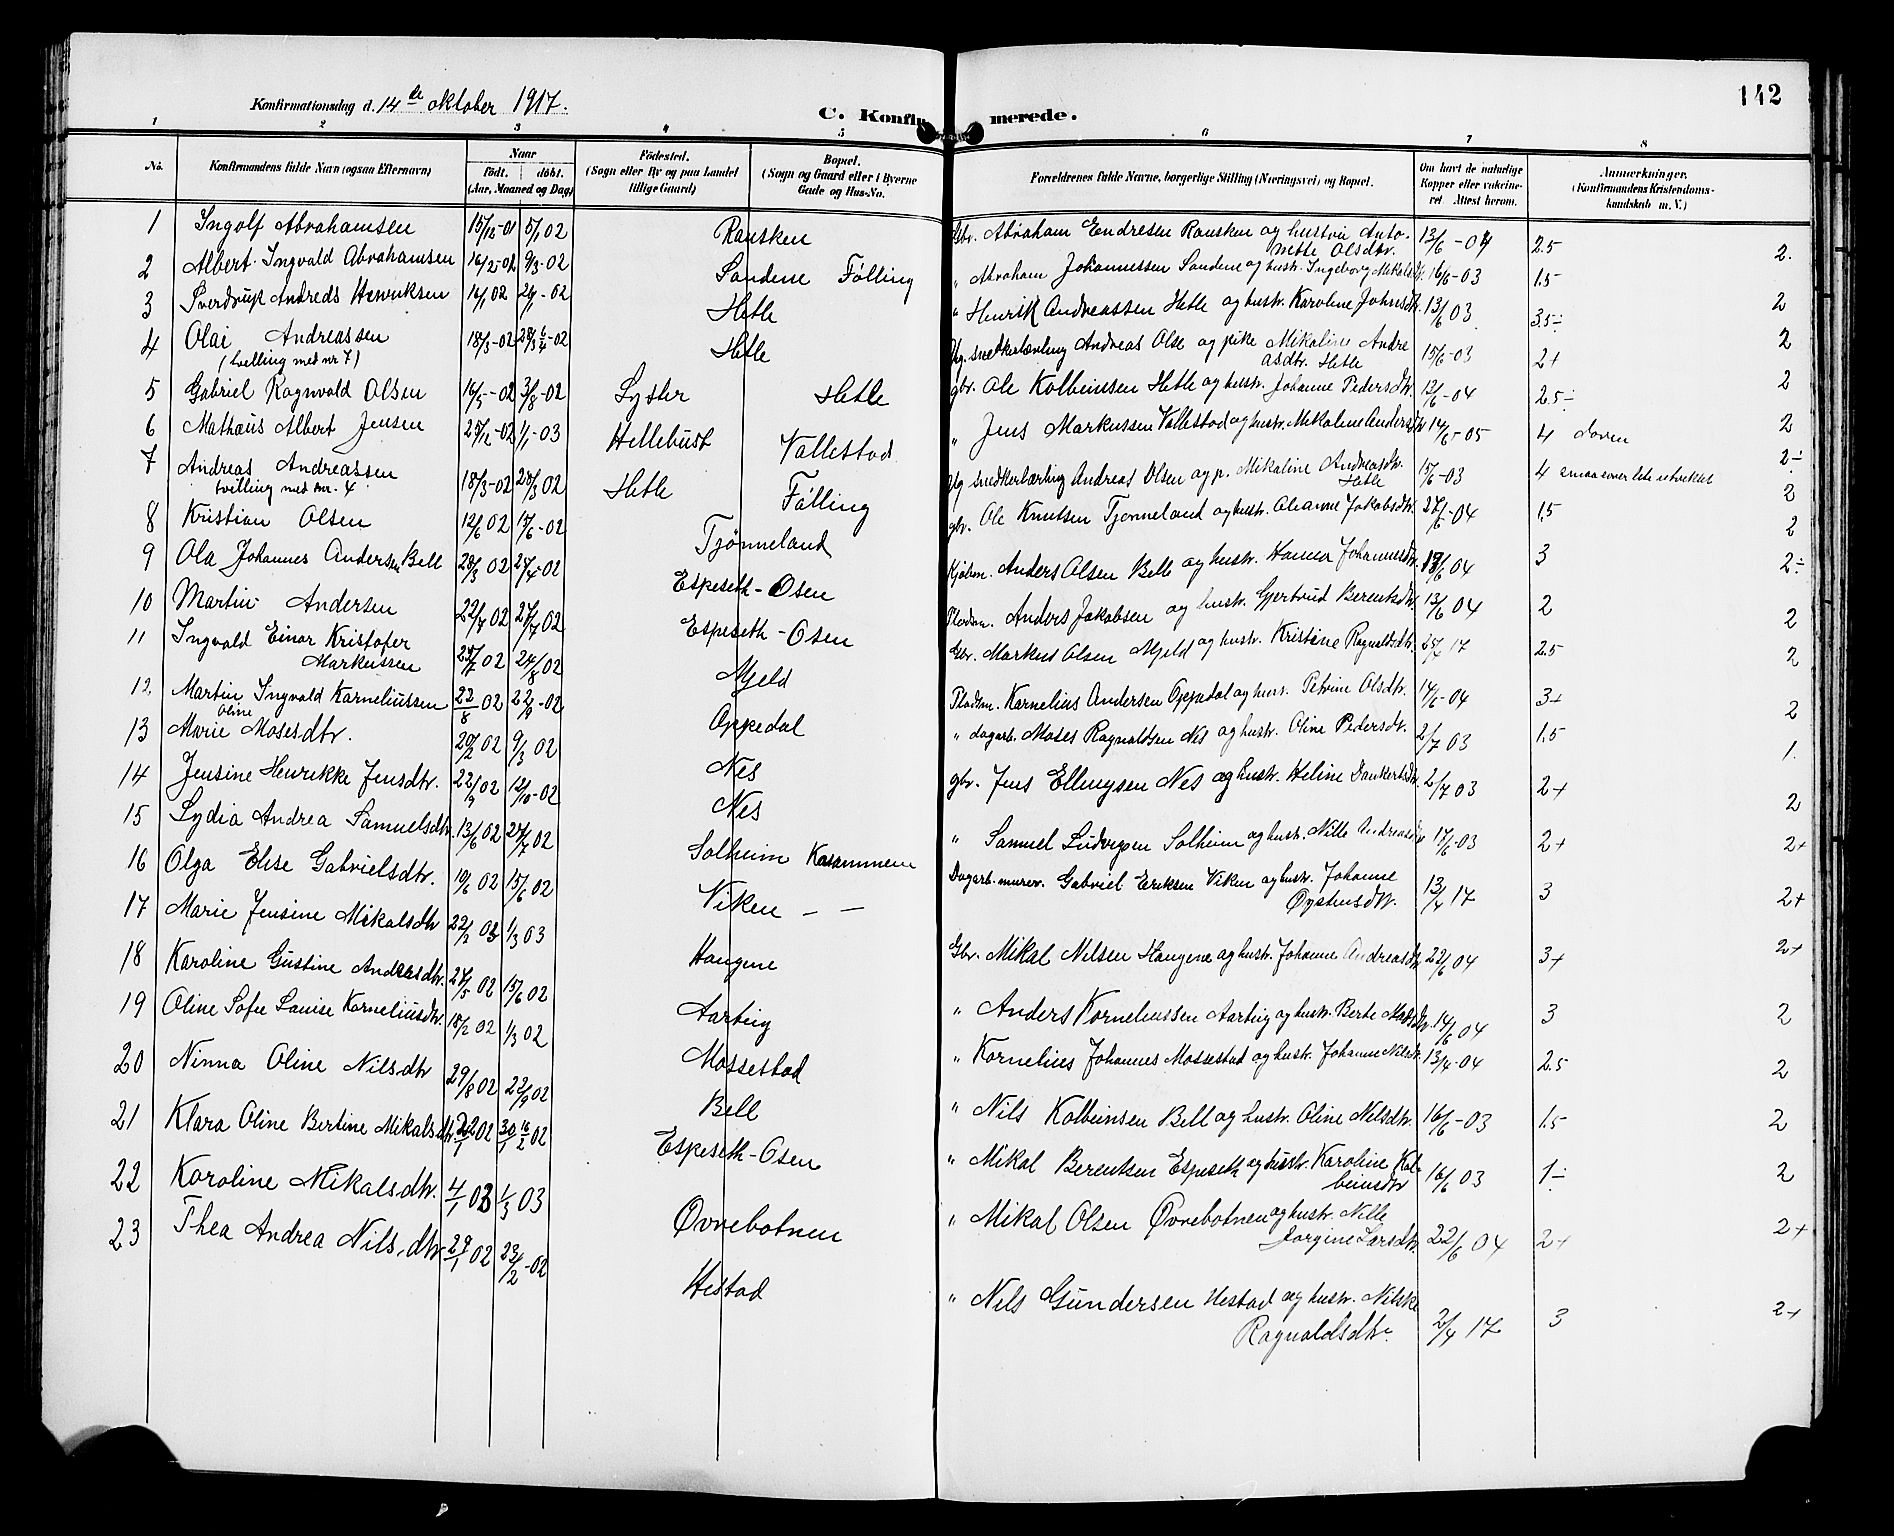 142
Konfirmationsdag d. 14de oktober 1917.
C. Konfirmerede.
1 2 3 4 5 6 7 8
No. Konfirmandens fulde Navn (ogsaa Efternavn) Naar født. døbt. (Aar, Maaned og Dag) Fødested. (Sogn eller By og paa Landet tillige Gaard) Bopæl. (Sogn og Gaard eller i Byerne Gade og Hus-No. Forældrenes fulde Navne, borgerlige Stilling (Næringsvei) og Bopæl. Om havt de naturlige Kopper eller vakcineret. Attest herom. Anmerkninger. (Konfirmandens Kristendomskundskab m. V.)
1 Ingolf Abrahamsen 15/12-01 5/1 02 Rausken Gbr. Abraham Endresen Rausken og hustru Antonette Olsdtr. 13/6-04 2.5 2.
2 Albert Ingvald Abrahamsen 16/2-02 9/3-02 Sandene Følling " Abraham Johannessen Sandene og hustr. Ingeborg 16/6-03 1.5
3 Sverdrup Andreas Henriksen 16/1 02 02 Hetle " Henrik Andreassen Hetle og hustr. Karoline Johnsdtr. 13/6 03 3.5÷ 2
4 Olai Andreassen 18/3-02 28/3 6/4-02 Hetle snedkerlærling Andreas Olse og pike Mikaline Andreasdtr. Hetle 15/6-03 2+ 2
(tvilling med nr 7)
5 Gabriel Ragnvald Olsen 16/5-02 3/8-02 Lyster Hetle gbr. Ole Kolbeinsen Hetle og hustr. Johanne Pedersdtr. 12/6-04 2.5÷ 2
6 Mathæus Albert Jensen 25/12-02 1/1-03 Hellebust Vallestad " Jens Markussen Vallestad og hustr. Mikaline 14/6-05 4 Doven 2
7 Andreas Andreassen 18/3-02 28/3 02 Hetle Følling snedkerlærling Andreas Olsen og p. Mikaline Andreasdtr. Hetle 15/6-03 4 2÷
tvilling med nr. 4
8 Kristian Olsen 12/6 02 17/6-02 Tjønneland gbr. Ole Knutsen Tjønneland og hustr. Olianne Jakobsdtr. 04 1.5 2
9 Ola Johannes Andersen Bell 28/3 02 27/4-02 Espeseth-Osen Kjøbm. Anders Olsen Bell og hustr. Hanna Johannesdtr. 13/6 04 3 2
10 Martin Andersen 22/7 02 27/7 02 Espeseth-Osen Pladsm. Anders Jakobsen og hustr. Gjertrud Berentsdtr. 13/6 04 2 2÷
11 Ingvald Einar Kristofer Markussen 25/7 02 24/8 02 Mjeld Gbr. Markus Olsen Mjeld og hustr. Kristine Ragnvaldsdtr. 25/4 17 2.5 2
12 Martin Ingvald Karneliussen 22/8 02 22/9-02 Oppedal Pladsm. Karnelius Andersen Oppedal og hustr. Petrine Olsdtr. 17/6-04 3+ 2
13 Marie Oline Mosesdtr. 20/2 02 9/3 02 Nes " dagarb. Moses Ragnaldsen Nes og hustr. Oline Pedersdtr. 2/7 03 1.5 2
14 Jensine Henrikke Jensdtr. 22/9 02 12/10-02 Nes gbr. Jens Ellingsen Nes og hustr. Heline Dankertsdtr. 2/7 03 2+ 1.
15 Lydia Andrea Samuelsdtr. 13/6 02 27/7 02 Solheim Kasammene " Samuel Ludvigsen Solheim og hustr. Nille Andreasdtr 17/6-03 2+ 2
16 Olga Elise Gabrielsdtr. 10/6 02 15/6 02 Viken — — Dagarb. murer. Gabriel Eriksen Viken og hustr. Johanne Øystensdtr. 13/4 17 3 2+
17 Marie Jensine Mikalsdtr 22/2 03 1/3 03 Haugene Gbr. Mikal Nilsen Haugene og hustr. Johanne Andreasdtr 22/6 04 3+ 2+
18 Karoline Gustine Andersdtr. 27/5 02 15/6 02 Aarberg " Anders Korneliussen Aarberg og hustr. Berte 14/6 04 3 2+
19 Oline Sofie Louise Korneliusdtr. 18/2 02 1/3 02 Mossestad " Kornelius Johannes Mossestad og hustr. Johanne Nilsdtr. 13/4-04 2.5 2
20 Ninna Oline Nilsdtr 29/8 02 22/9 02 Bell " Nils Kolbeinsen Bell og hustr. Oline Nilsdtr. 16/6-03 1.5 2
21 Klara Oline Bertine Mikalsdtr 02 30/1 16/2 02 Espeseth-Osen " Mikal Berentsen Espeseth og hustr. Karoline Kolbeinsdtr 16/6 03 1÷ 2
22 Karoline Mikalsdtr. 4/1 03 1/3 03 Øvrebotnen " Mikal Olsen Øvrebotnen og hustr. Nille Jorgine Larsdtr 22/6 04 2+ 2
23 Thea Andrea Nilsdtr 29/1 02 23/2-02 Hestad " Nils Gundersen Hestad og hustr. Nilske Ragnaldsdtr. 2/4 17 3 2+
2+